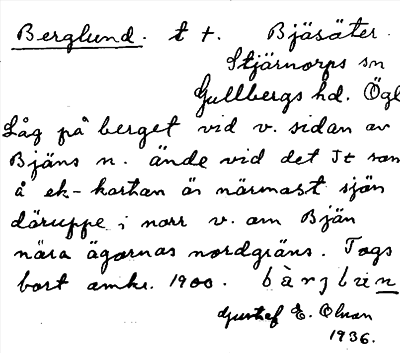 Berglund. t t. Bjäsäter.
Stjärnorps sn
Gullbergs hd. Ögl
Låg på berget vid v. sidan av
Bjäns n. ände vid det It som
å ek-kartan är närmast sjön
däruppe i norr v. om Bjän
nära ägornas nordgräns. Togs
bort omkr. 1900.
Gustaf E. Olson
1936.